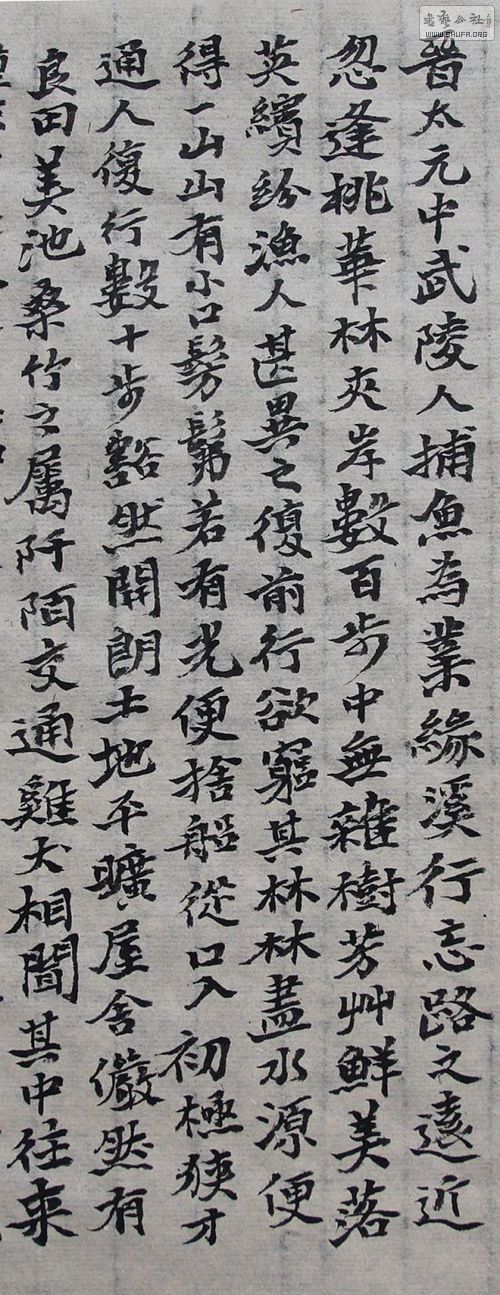 書法公社
WWW.SHUFA.ORG
晉太元中武陵人捕魚為業緣溪行忘路之遠近
忽逢桃華林夾岸數百步中無雜樹芳艸鮮美落
英繽紛漁人甚異之復前行欲窮其林林盡水源便
得一山山有小口髣髴若有光便捨船從口入初極狹才
通人復行數十步豁然開朗土地平曠屋舍儼然有
良田美池桑竹之屬阡陌交通雞犬相聞其中往来